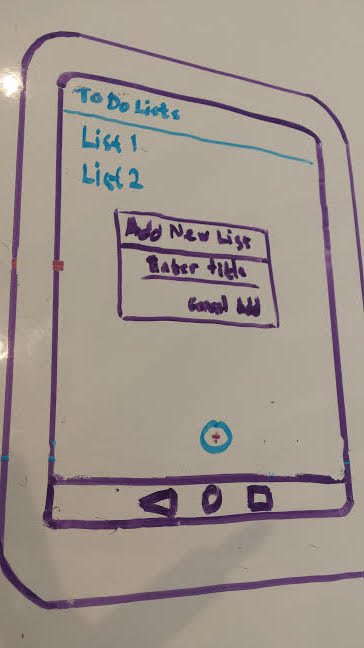 To Do Lists
List 1
List 2
Add New List
Enter title
Cancel Add
+